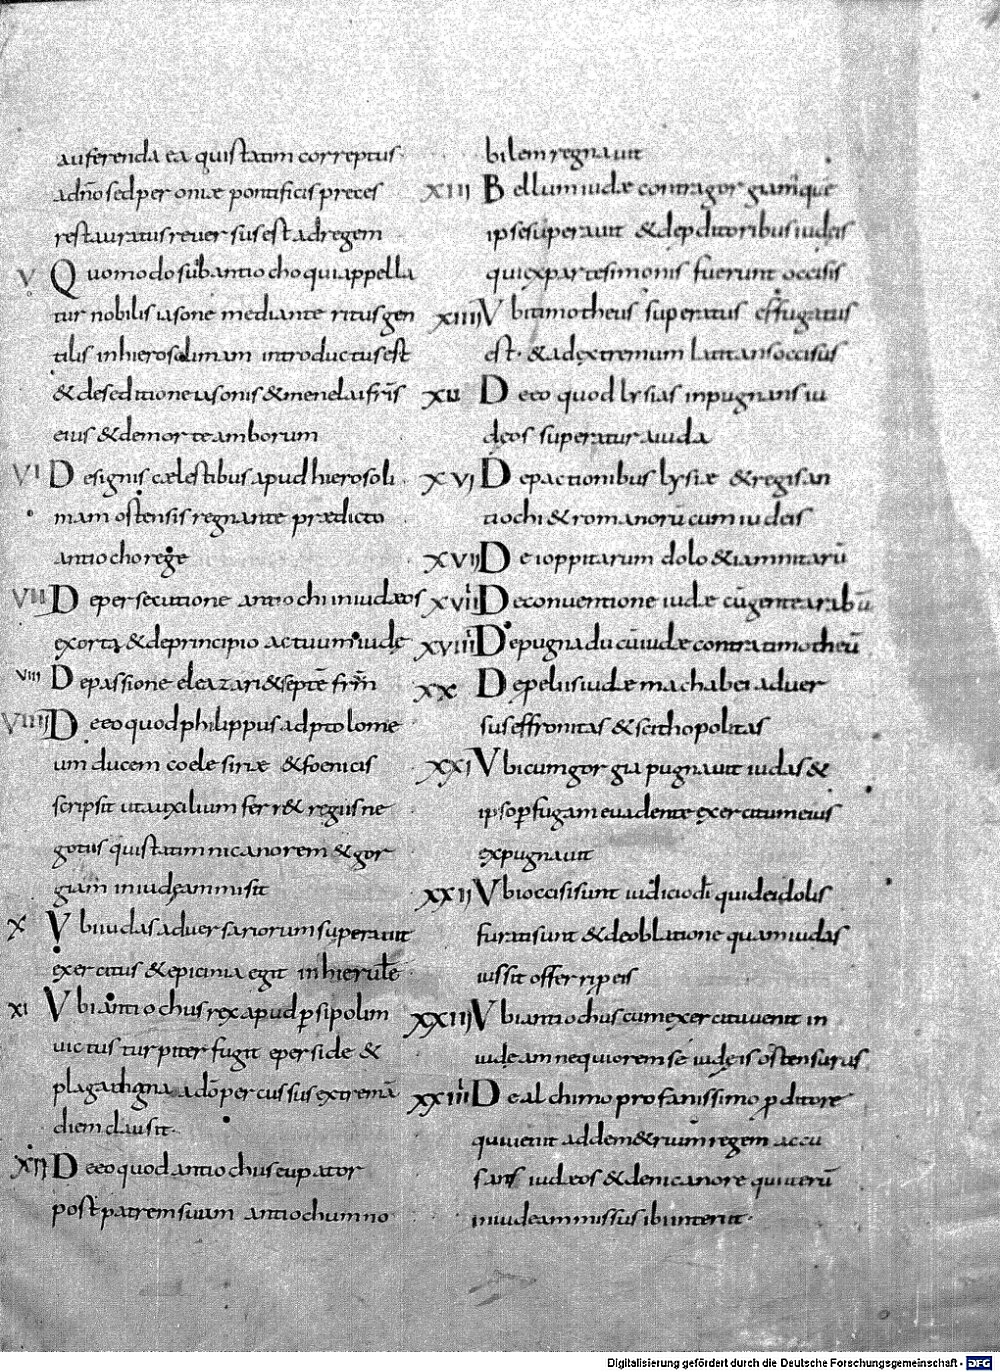 auferenda ea qui statim correptus
a dño sed per oniæ pontificis preces
restauratus reversus est ad regem
V Quomodo sub antiocho qui appella
tur nobilis iasone mediante ritus gen
tilis in hierosolimam introductus est
& de seditione iasonis & menelai fr̄is
eius & de morte amborum
VI De signis cælestibus apud hierosoli
mam ostensis regnante prædicto
antiocho rege
VII De persecutione antiochi in iudæos
exorta & de principio actuum iudę
VIII De passione eleazari & septē fr̄m
VIIII De eo quod philippus ad ptolome
um ducem coelesiriæ & foenicis
scripsit ut auxilium ferr& regiis ne
gotiis qui statim nicanorem & gor
giam in iudęam misit
X Vbi iudas adversariorum superavit
exercitus & epicinia egit in hierusłē
XI Vbi antiochus rex apud p̱sipolim
victus turpiter fugit e perside &
plaga digna a dō percussus extremā
diem clausit
XII De eo quod antiochus eupator
post patrem suum antiochum no
bilem regnavit
XIII Bellum iudæ contra gorgiam quē
ipse superavit & de p̱ditoribus iudęis
qui ex parte simonis fuerunt occisis
XIIII Vbi timotheus superatus effugatus
est & ad extremum latitans occisus
XV De eo quod lysias inpugnans iu
dęos superatur a iuda
XVI De pactionibus lysiæ & regis an
tiochi & romanorū cum iudęis
XVII De ioppitarum dolo & iamnitarū
XVIII De conventione iudæ cū gente arabū
XVIIII De pugna du cū iudæ contra timotheū
XX De peliis iudæ machabei adver
sus effronitas & scithopolitas
XXI Vbi cum gorgia pugnavit iudas &
ipso p̱ fugam evadente exercitum eius
expugnavit
XXII Vbi occisi sunt iudicio dī qui de idolis
furati sunt & de oblatione quam iudas
iussit offerri p̱ eis
XXIII Vbi antiochus cum exercitu venit in
iudęam nequiorem se iudęis ostensurus
XXIIII De alchimo profanissimo p̱ditore
qui venit ad dem&rium regem accu
sans iudæos & de nicanore qui iuerū
in iudeam missus ibi interiit